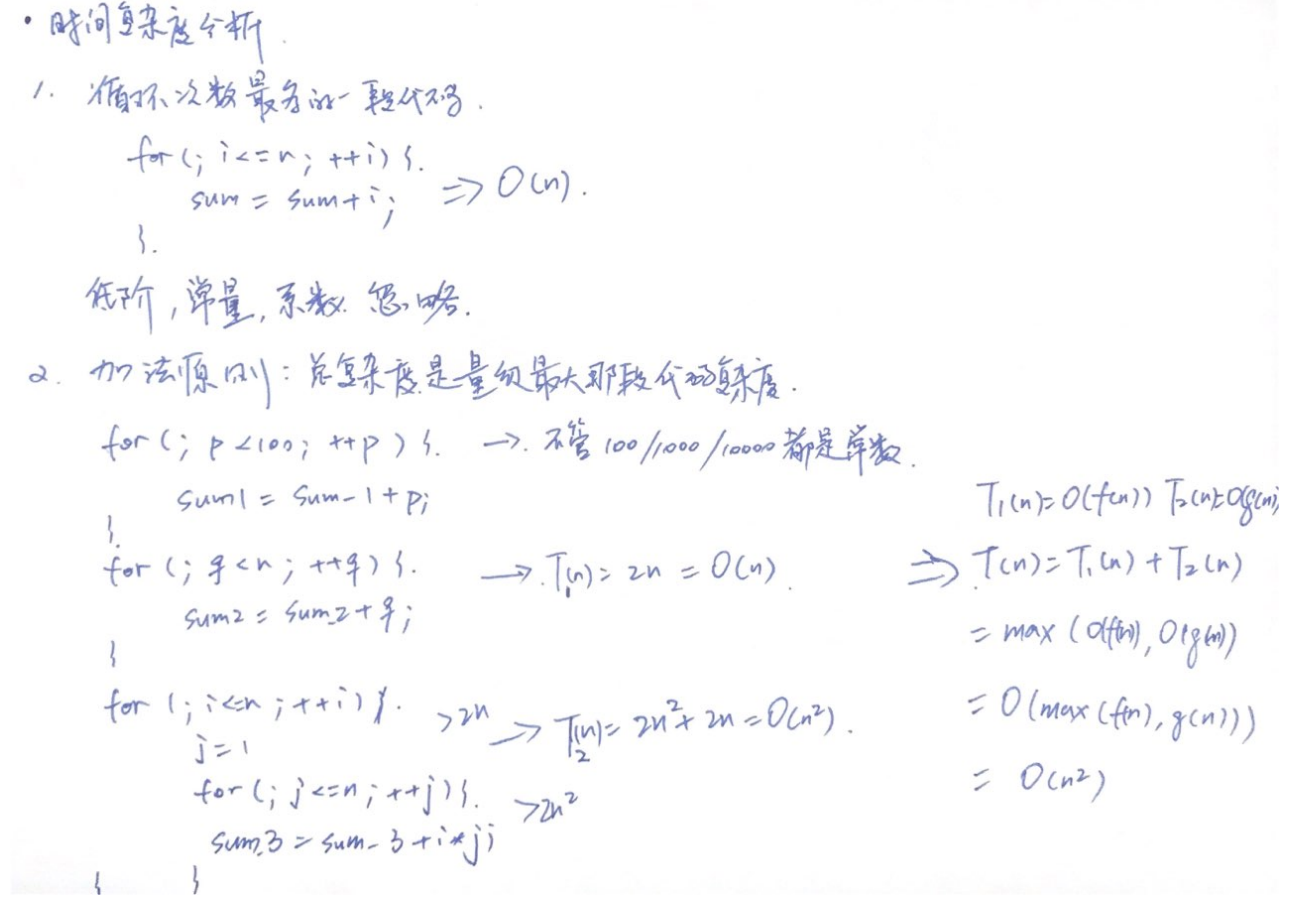 · 时间复杂度分析.
1. 循环次数最多的一段代码.
for (; i<=n; ++i) {.
sum = sum+i; => O(n).
}.
低阶,常量,系数.忽略.
2. 加法原则:总复杂度是量级最大那段代码复杂度.
for (; p<100; ++p) {. →. 不管100/1000/10000都是常数.
sum1 = sum-1+p;
}.
for (; q<n; ++q) {. →. T1(n) = 2n = O(n).
sum2 = sum_2+q;
}
for (; i<=n; ++i) {. >2n → T2(n) = 2n²+2n = O(n²).
j=1
for (; j<=n; ++j) {. >2n²
sum_3 = sum-3+i*j;
} }
T1(n)=O(f(n)) T2(n)=O(g(n))
=> T(n)=T1(n)+T2(n)
= max (O(f(n)), O(g(n)))
= O(max(f(n), g(n)))
= O(n²)